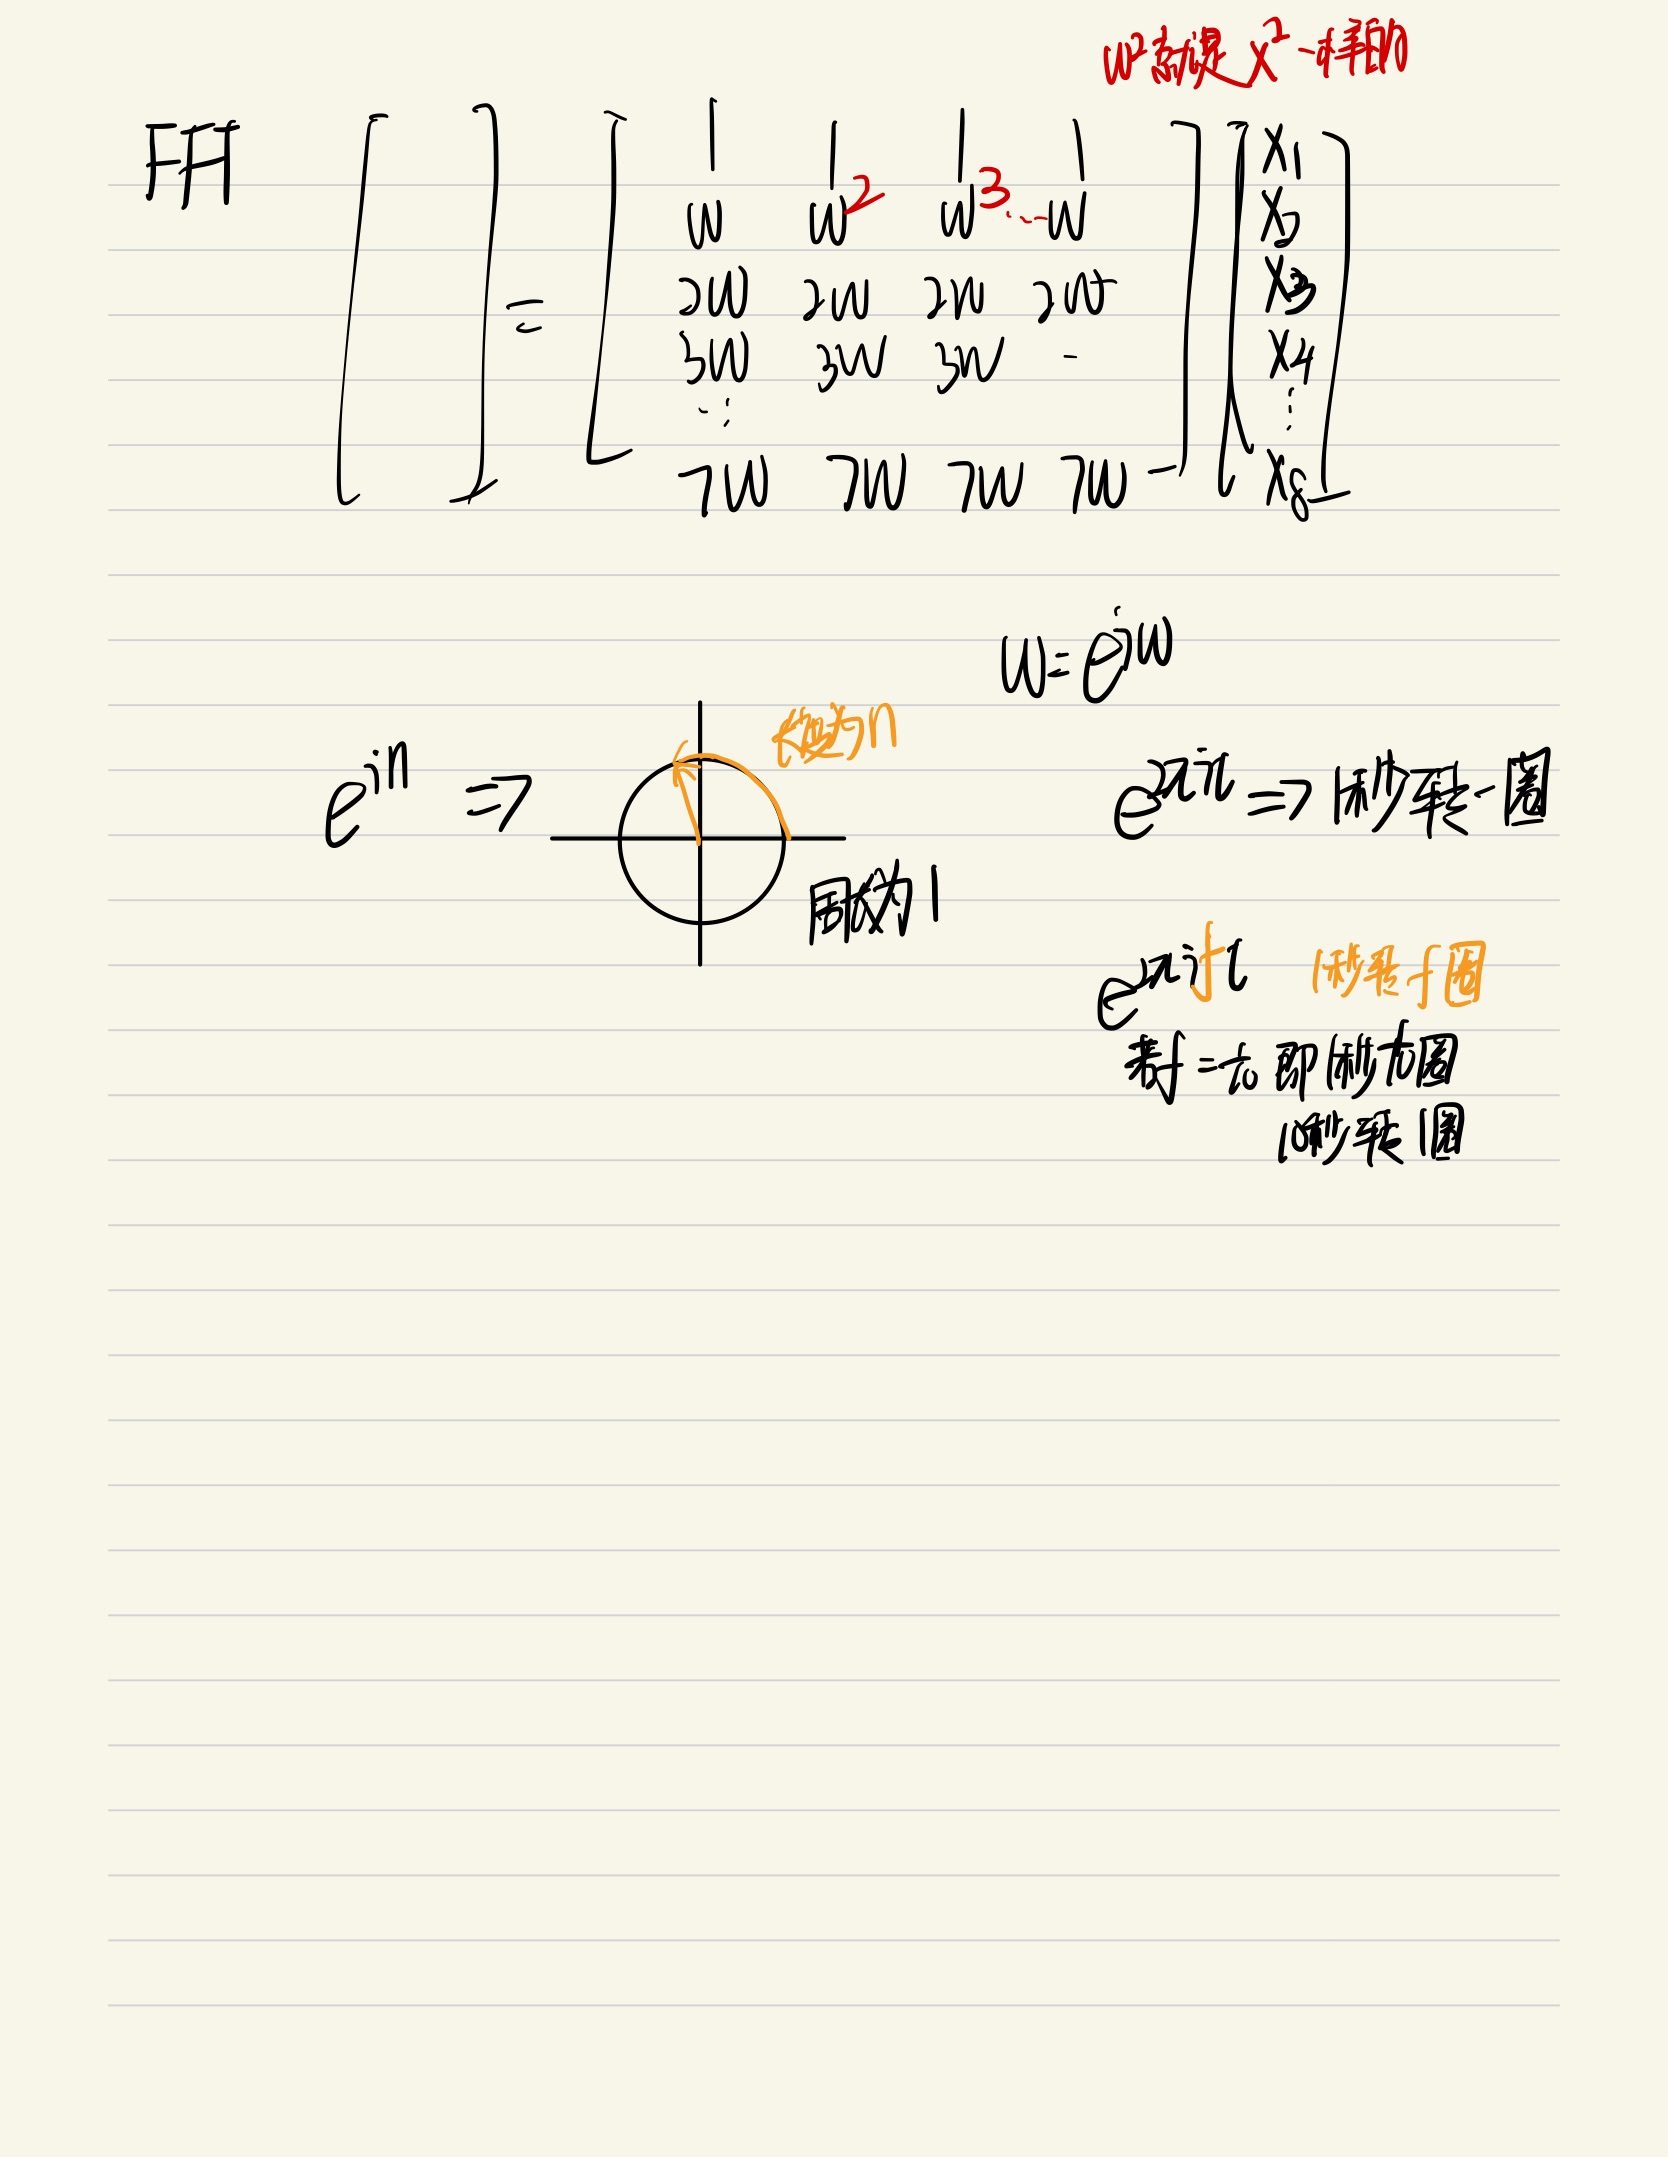 w²就是x²一样的
FFT
= 1 1 1 1 x1
w w² w³ ... w x2
2w 2w 2w 2w x3
3w 3w 3w - x4
7w 7w 7w 7w - x8
w=e^jw
e^jn => 长度为n
周长为1
e^2πit => 1秒转一圈
e^2πift 1秒转f圈
若f=1/10 即1秒1/10圈
10秒转1圈